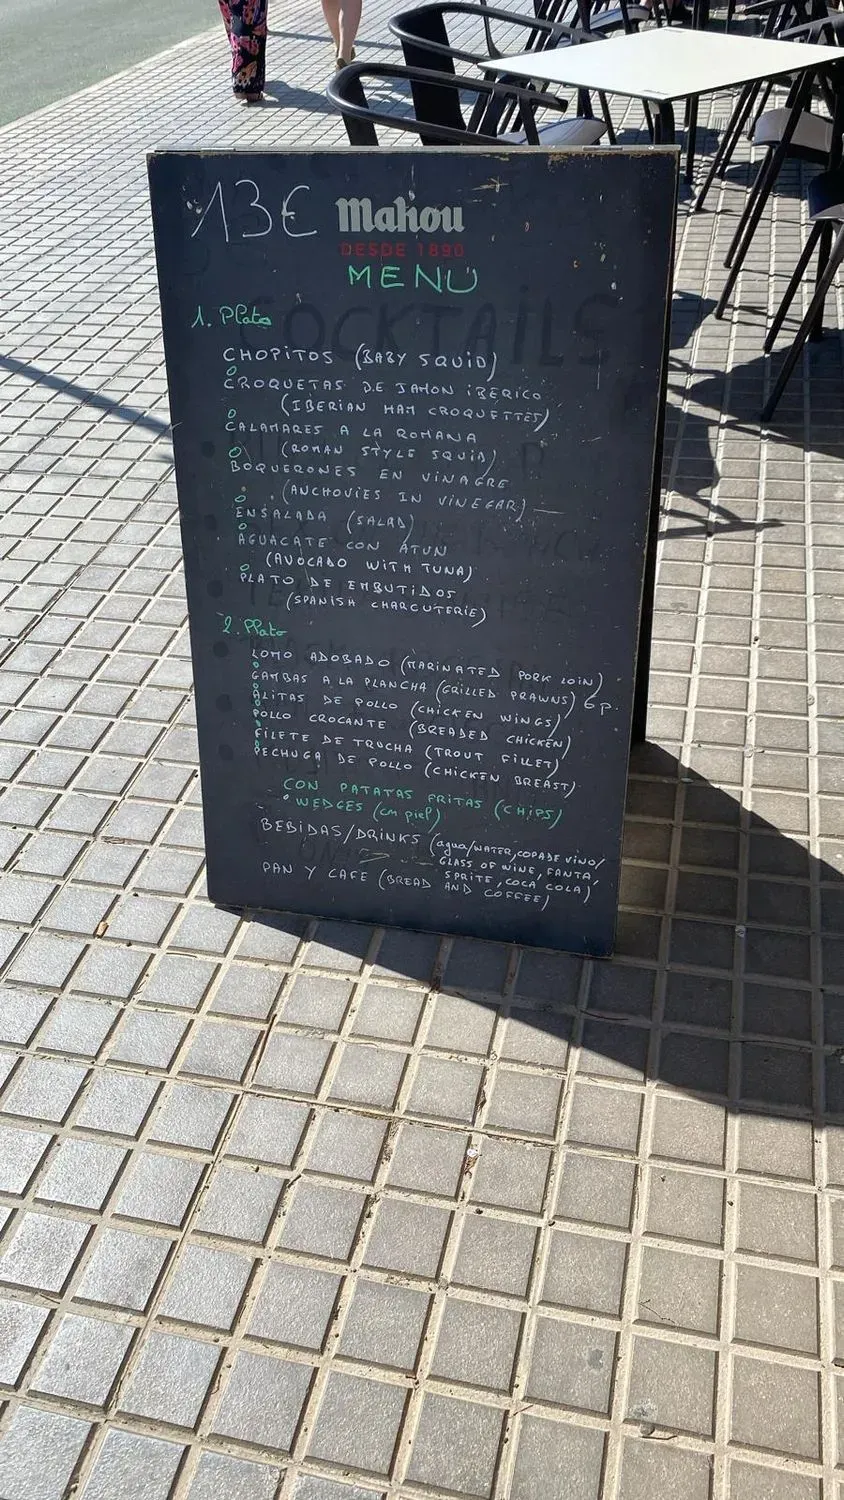 13€ Mahou
DESDE 1890
MENU
1. Plato
CHOPITOS (BABY SQUID)
CROQUETAS DE JAMON IBERICO
(IBERIAN HAM CROQUETTES)
CALAMARES A LA ROMANA
(ROMAN STYLE SQUID)
BOQUERONES EN VINAGRE
(ANCHOVIES IN VINEGAR)
ENSALADA (SALAD)
AGUACATE CON ATUN
(AVOCADO WITH TUNA)
PLATO DE EMBUTIDOS
(SPANISH CHARCUTERIE)
2. Plato
LOMO ADOBADO (MARINATED PORK LOIN)
GAMBAS A LA PLANCHA (GRILLED PRAWNS) 6p.
ALITAS DE POLLO (CHICKEN WINGS)
POLLO CROCANTE (BREADED CHICKEN)
FILETE DE TRUCHA (TROUT FILLET)
PECHUGA DE POLLO (CHICKEN BREAST)
CON PATATAS FRITAS (CHIPS)
WEDGES (con piel)
BEBIDAS/DRINKS (agua/WATER, COPA DE VINO/
GLASS OF WINE, FANTA,
SPRITE, COCA COLA)
PAN Y CAFE (BREAD AND COFFEE)
COCKTAILS